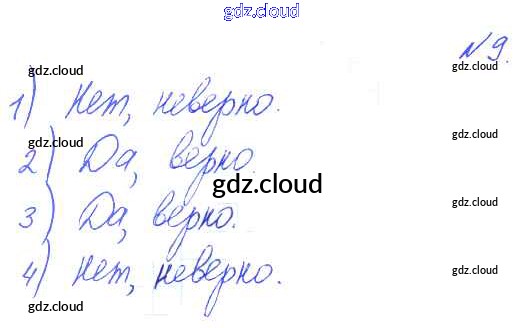 gdz.cloud
№ 9.
gdz.cloud gdz.cloud
1) Нет, неверно.
gdz.cloud gdz.cloud
2) Да, верно.
gdz.cloud
3) Да, верно.
gdz.cloud gdz.cloud
4) Нет, неверно.
gdz.cloud
gdz.cloud